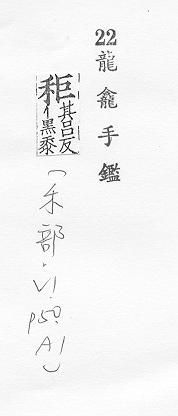 22 龍龕手鑑
秬
其呂反
黑黍
(禾部.V1.
p50.
A1)